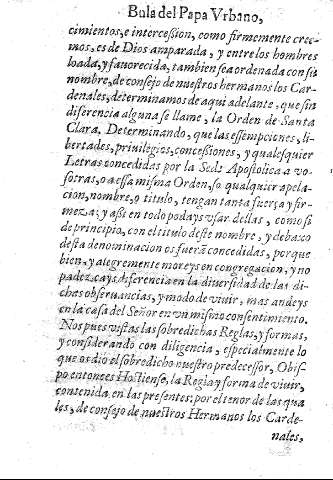 Bula del Papa Vrbano,
cimientos, e intercession, como firmemente cree-
mos, es de Dios amparada, y entre los hombres
loada, y fauorecida, tambien sea ordenada con su
nombre, de consejo de nuestros hermanos los Car-
denales, determinamos de aqui adelante, que sin
diferencia alguna se llame, la Orden de Santa
Clara. Determinando, que las essempciones, li-
bertades, priuilegios, concessiones, y qualesquier
Letras concedidas por la Sede Apostolica a vo-
sotras, o a essa misma Orden, so qualquier apela-
cion, nombre, o titulo, tengan tanta fuerça y fir-
meza: y assi en todo podays vsar dellas, como si
de principio, con el titulo deste nombre, y debaxo
desta denominacion os fuerã concedidas, porque
bien, y alegremente moreys en congregacion, y no
padezcays diferencia en la diuersidad de las di-
chas obseruancias, y modo de viuir, mas andeys
en la casa del Señor en vn mismo consentimiento.
Nos pues vistas las sobredichas Reglas, y formas,
y considerando con diligencia, especialmente lo
que os dio el sobredicho nuestro predecessor, Obis-
po entonces Hostiense, la Regla y forma de viuir,
contenida en las presentes: por el tenor de las qua
les, de consejo de nuestros Hermanos los Carde-
nales,